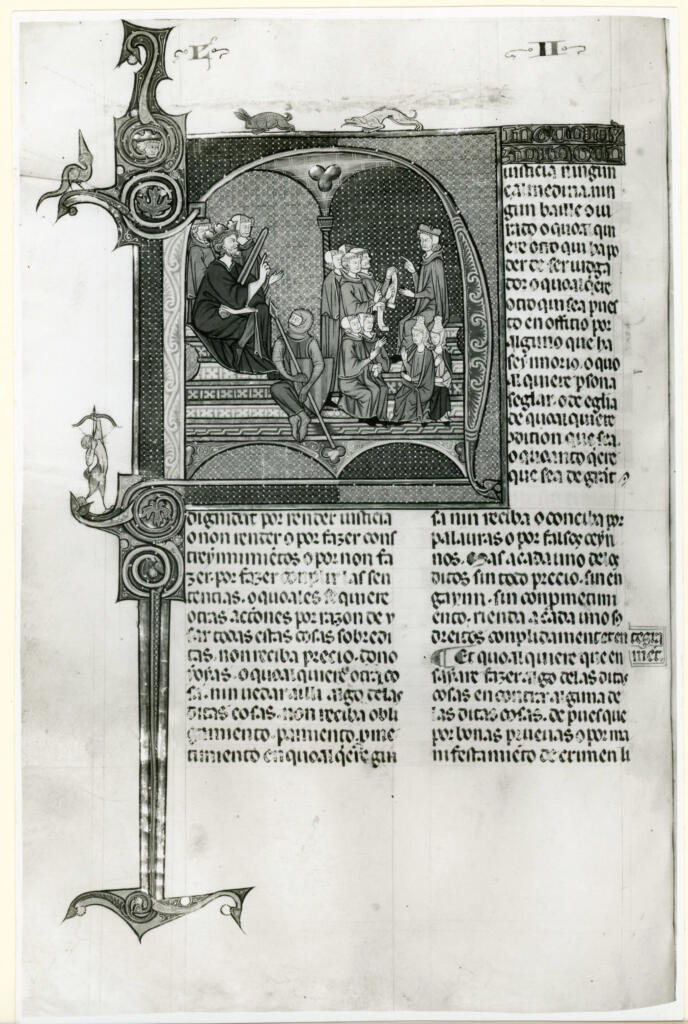 L II
iusticia ningun
çalmedina nin
gun baille o iu
rado o quoal qui
ere otro qui ha po
der de ser iudga
dor o quoal q̄ere
otro qui sea pues
to en offitio por
alguno que ha
seynnorio. o quo
al quiere ꝑsona
seglar. o de eglia
de quoal quiere
ꝯdition que sea.
o quanto q̄ere
que sea de grãt
dignidat por render iusticia
o non render o por fazer cons
treynimiẽtos o por non fa
zer. por fazer conplir las sen
tencias. o quoales se quiere
otras actiones por razon de y
sar todas estas cosas sobredi
tas. non reciba precio. dono
ropas. o quoal quiere otra co
sa. nin uedar aillà algo delas
ditas cosas. non reciba obli
gamiento. pamiento. ꝓme
timiento en quoal q̄ere gui
sa nin reciba o conciba por
palauras o por falsos eyn
nos. Mas a cada uno delos
ditos sin todo precio. sin en
gaynno. sin conpometim
ento. rienda a cada uno so
dreitos conplidament et en tegra
ment.
Et quoal quiere que en
saiare fazer algo delas ditas
cosas en contra alguna de
las ditas cosas. depues que
por bonas prueuas o por ma
nifestamiẽto de crimen li